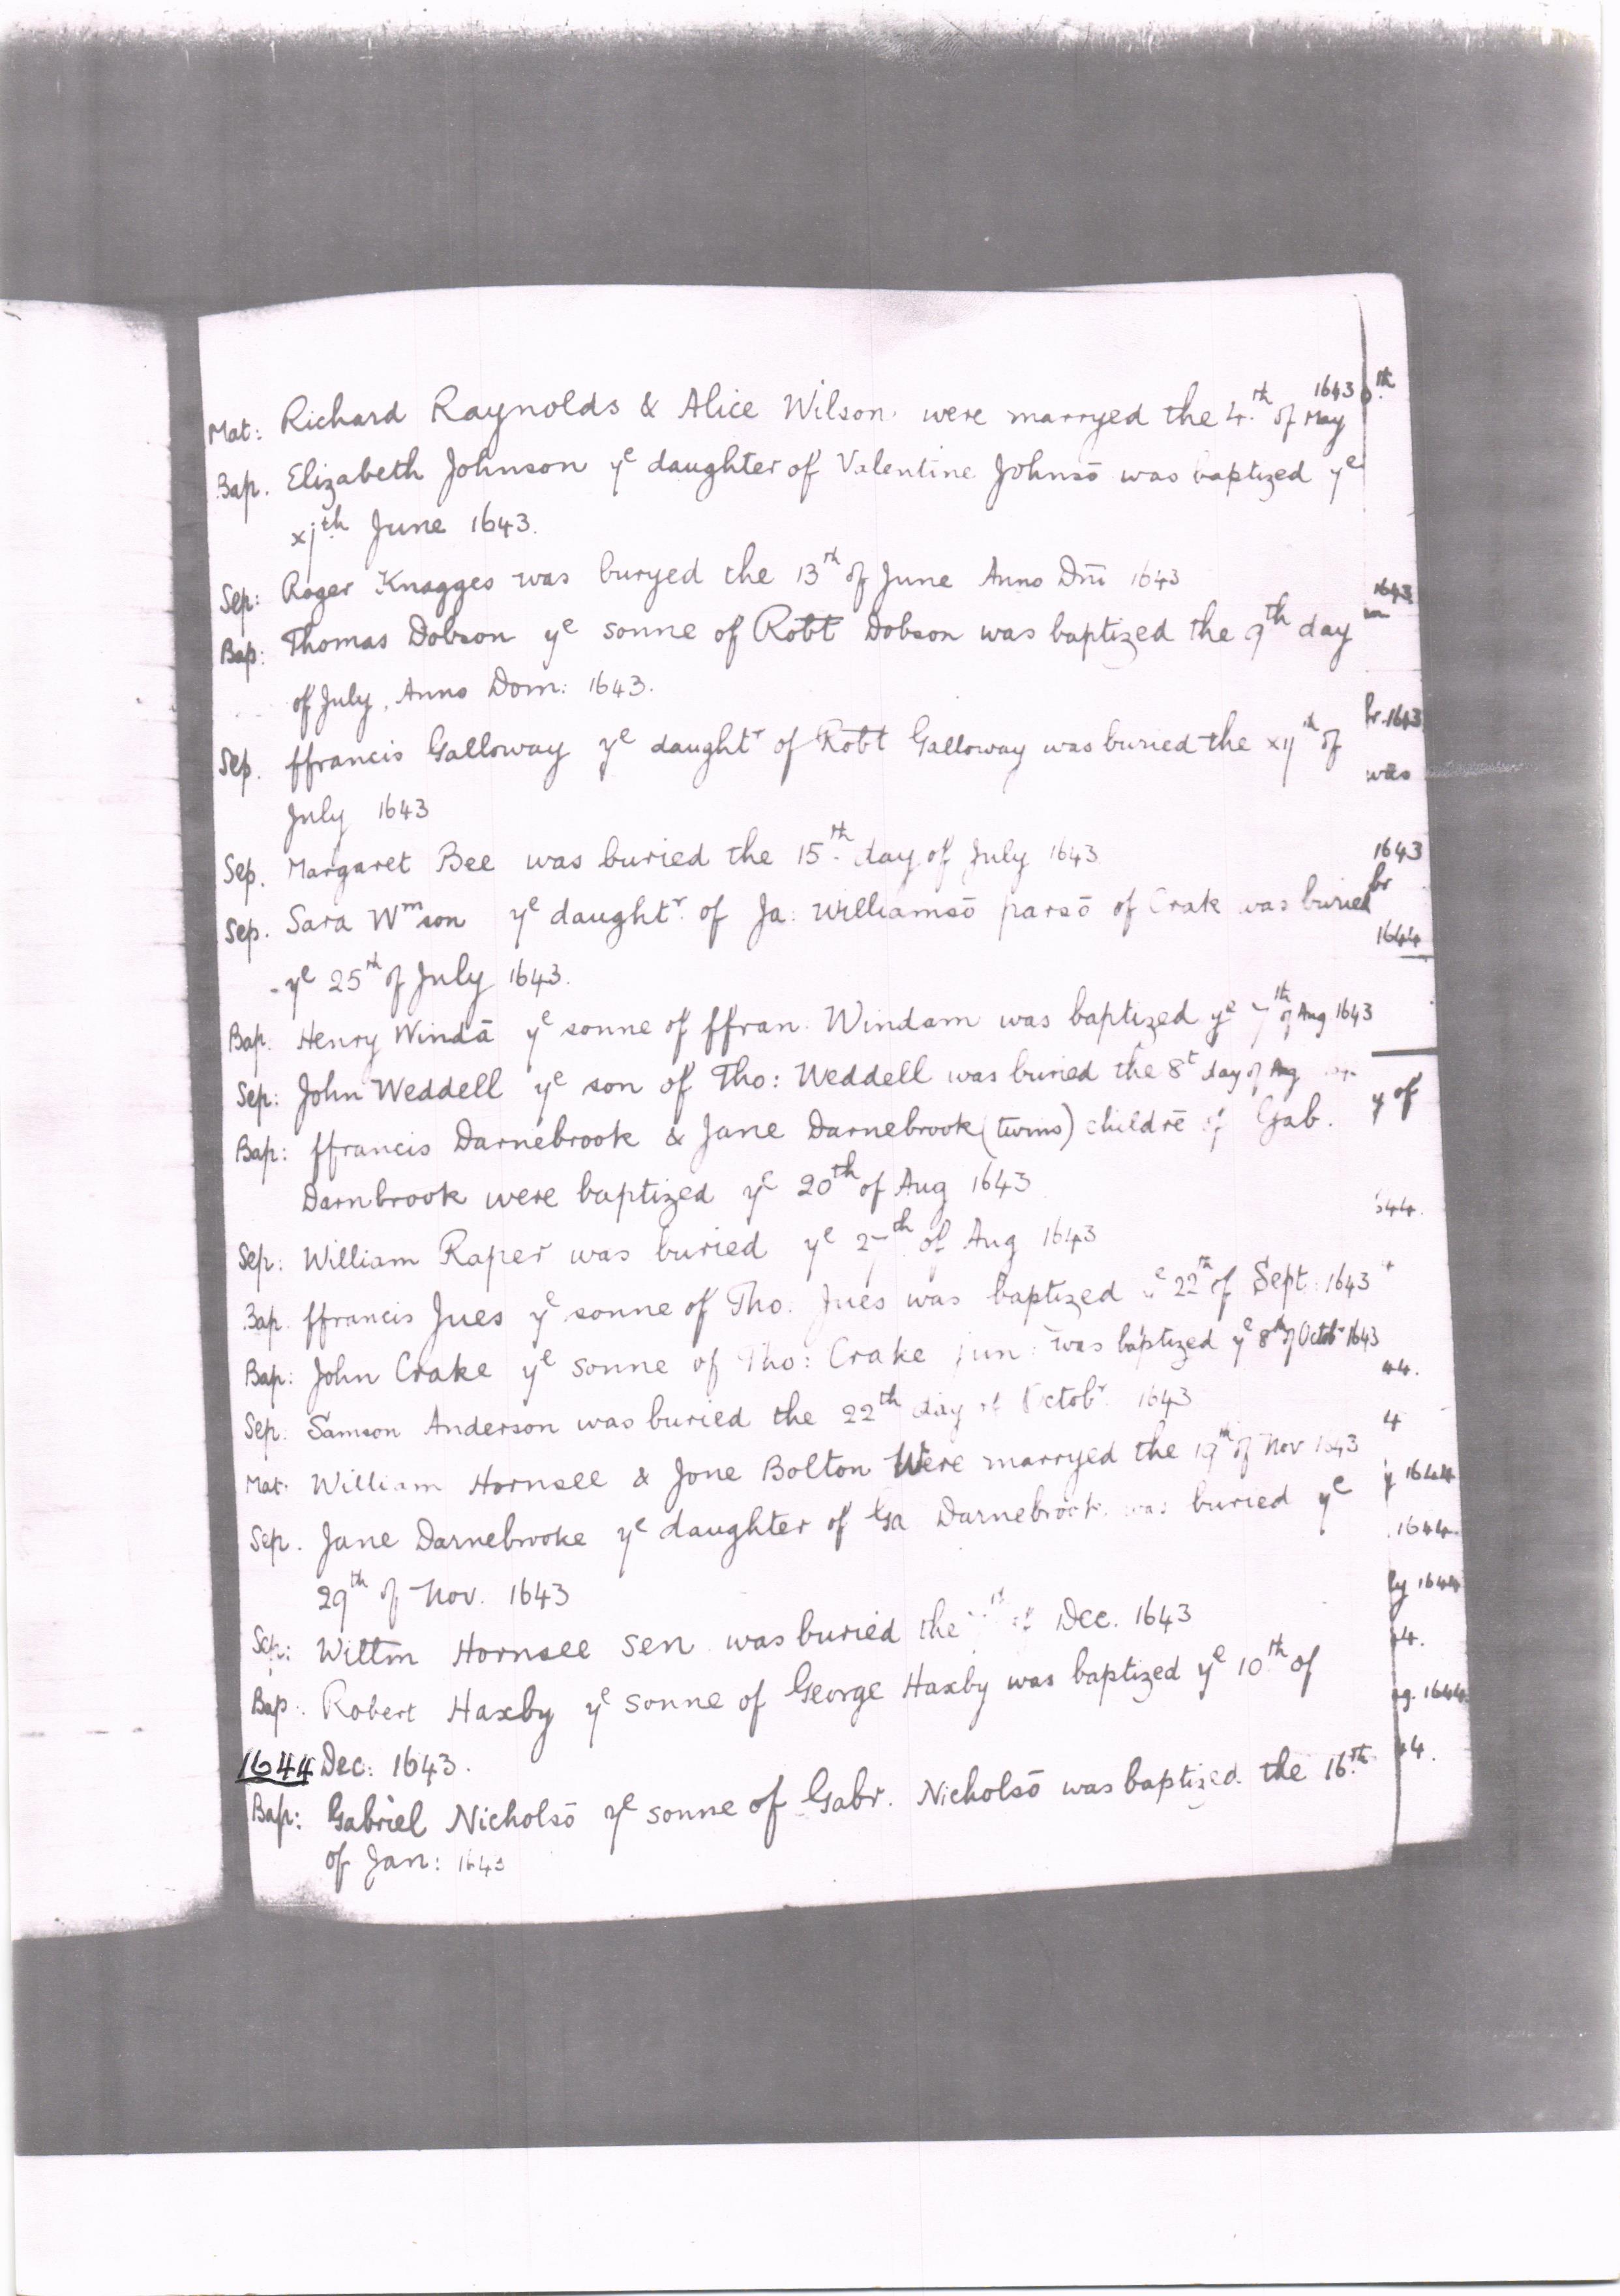 Mat: Richard Raynolds & Alice Wilson were marryed the 4.th of May 1643
Bap. Elizabeth Johnson ye daughter of Valentine Johnsō was baptized ye
xjth June 1643.
Sep: Roger Knagges was buryed the 13th of June Anno Dm̄ 1643
Bap: Thomas Dobson ye sonne of Robt Dobson was baptized the 9th day
of July, Anno Dom: 1643.
Sep. ffrancis Galloway ye daughtr of Robt Galloway was buried the xijth of
July 1643
Sep. Margaret Bee was buried the 15th day of July 1643
Sep. Sara Wmson ye daughtr. of Ja: Williamsō parsō of Crak was buried
ye 25th of July 1643.
Bap. Henry Windā ye sonne of ffran. Windam was baptized ye 7th of Aug 1643
Sep: John Weddell ye son of Tho: Weddell was buried the 8t day of Aug
Bap: ffrancis Darnebrook & Jane Darnebrook (twins) childrē of Gab.
Darnbrook were baptized ye 20th of Aug 1643
Sep: William Raper was buried ye of Aug 1643
Bap. ffrancis Jues ye sonne of Tho. Jues was baptized ye 22th of Sept: 1643
Bap: John Crake ye sonne of Tho: Crake jun: was baptized ye 8th of Octobr 1643
Sep: Samson Anderson was buried the 22th day of Octobr. 1643
Mat: William Hornsee & Jone Bolton Were marryed the 19th of Nov 1643
Sep. Jane Darnebrooke ye daughter of Ga Darnebrook was buried ye
29th of Nov. 1643
Sep: Willm Hornsee sen was buried the of Dec. 1643
Bap: Robert Haxby ye sonne of George Haxby was baptized ye 10th of
1644 Dec: 1643.
Bap: Gabriel Nicholsō ye sonne of Gabr. Nicholsō was baptized the 16th
of Jan: 1643
th
1643
br. 1643
was
1643
br
1644
y of
44.
4
y 1644
1644
ly 1644
44.
ug. 1644
44.